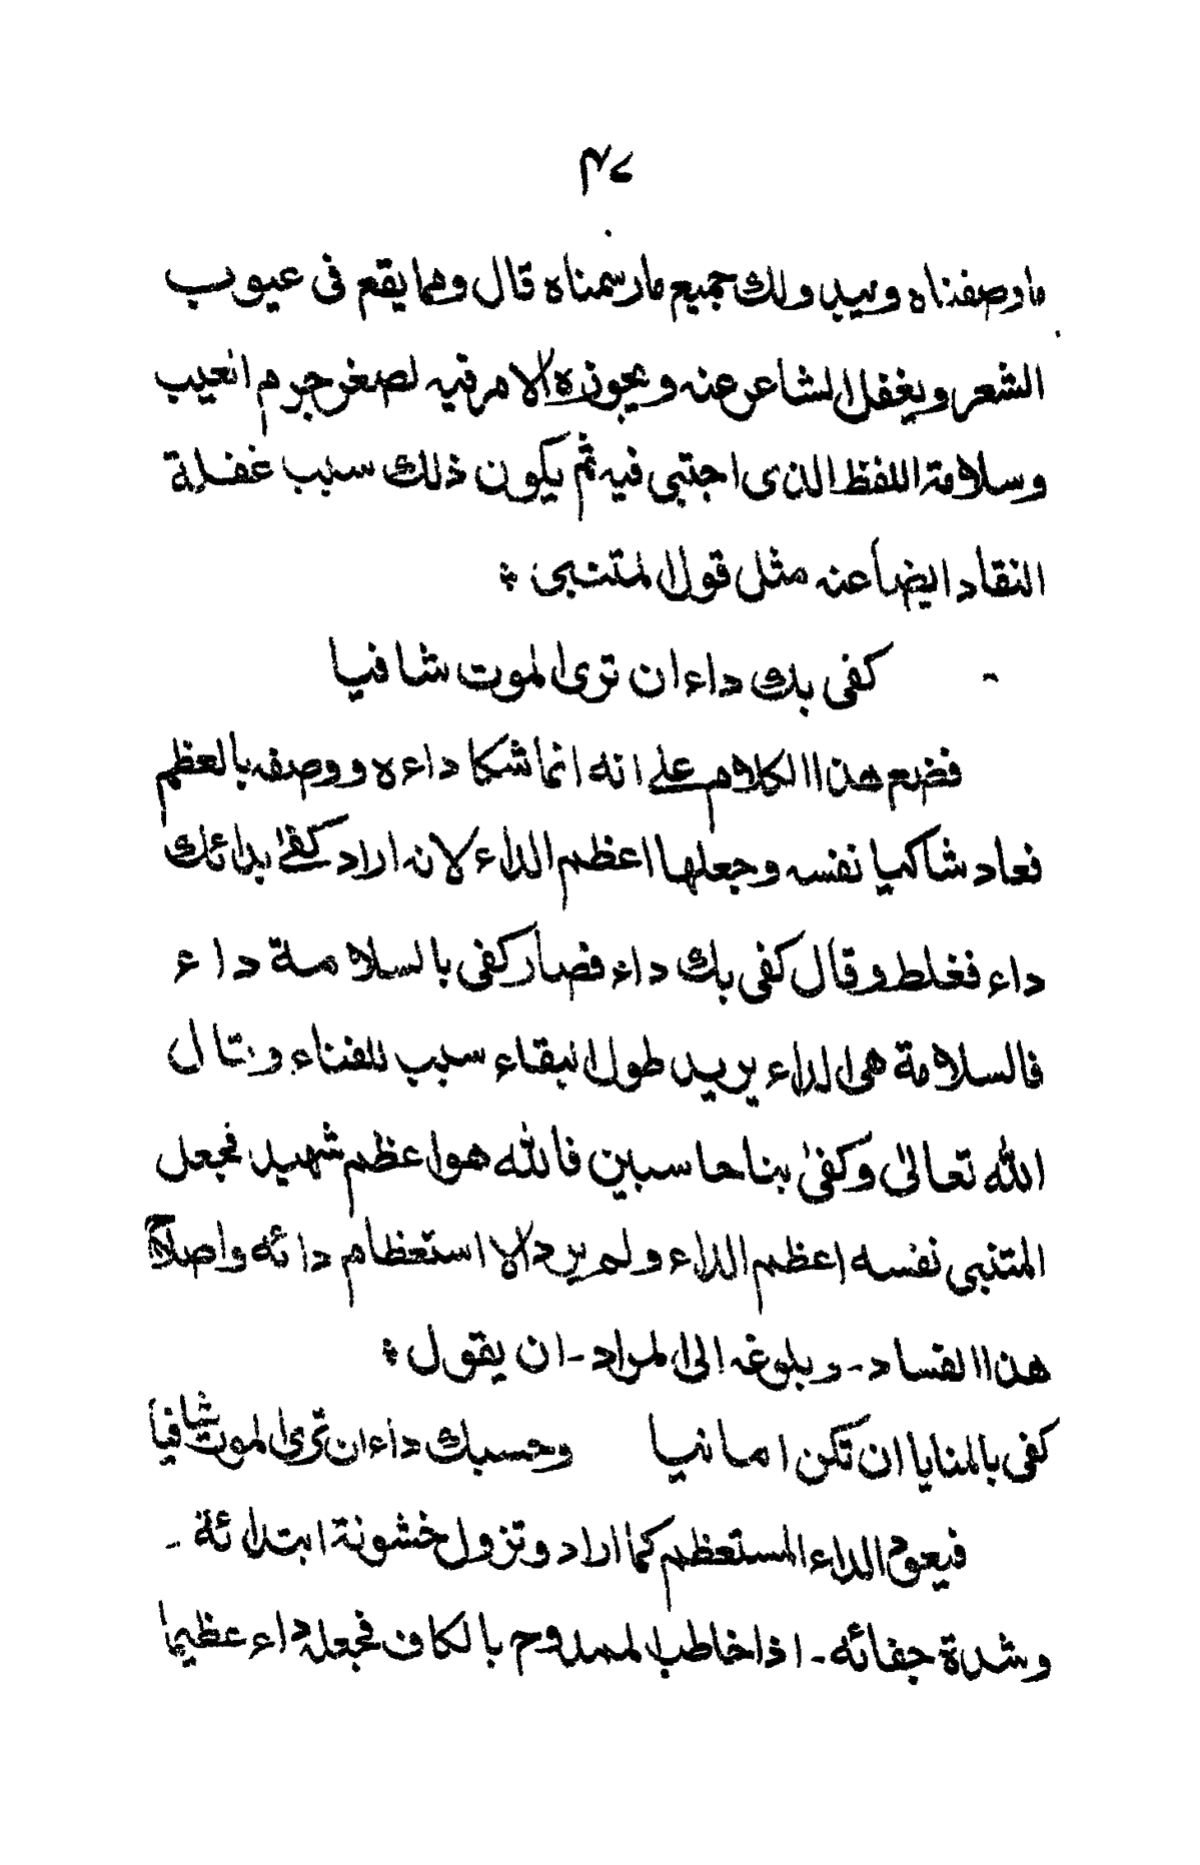 ٤٧
ماوصفناه ويبد ولك جميع مارسمناه قال ومما يقع فى عيوب
الشعر ويغفل الشاعر عنه ويجوزه الامر فيه لصغر جرم العيب
وسلامة اللفظ الذى اجتبى فيه ثم يكون ذلك سبب غفلة
النقاد ايضا عنه مثل قول المتنبى ؛
كفى بك داء ان ترى الموت شافيا
فضيع هذا الكلام على انه انما شكا داءه ووصفه بالعظم
فعاد شاكيا نفسه وجعلها اعظم الداء لانه اراد كفى بدائك
داء فغلط وقال كفى بك داء فصار كفى بالسلامة داء
فالسلامة هى الداء يريد طول البقاء سبب للفناء وقال
الله تعالى وكفى بنا حاسبين فالله هو اعظم شهيد فجعل
المتنبى نفسه اعظم الداء ولم يرد الا استعظام دائه واصلاح
هذا الفساد - وبلوغه الى المراد - ان يقول ؛
كفى بالمنايا ان تكن امانيا وحسبك داء ان ترى الموت شافيا
فيعود الداء المستعظم كما اراد وتزول خشونة ابتدائه -
وشدة جفائه - اذا خاطب الممدوح بالكاف فجعله داء عظيما